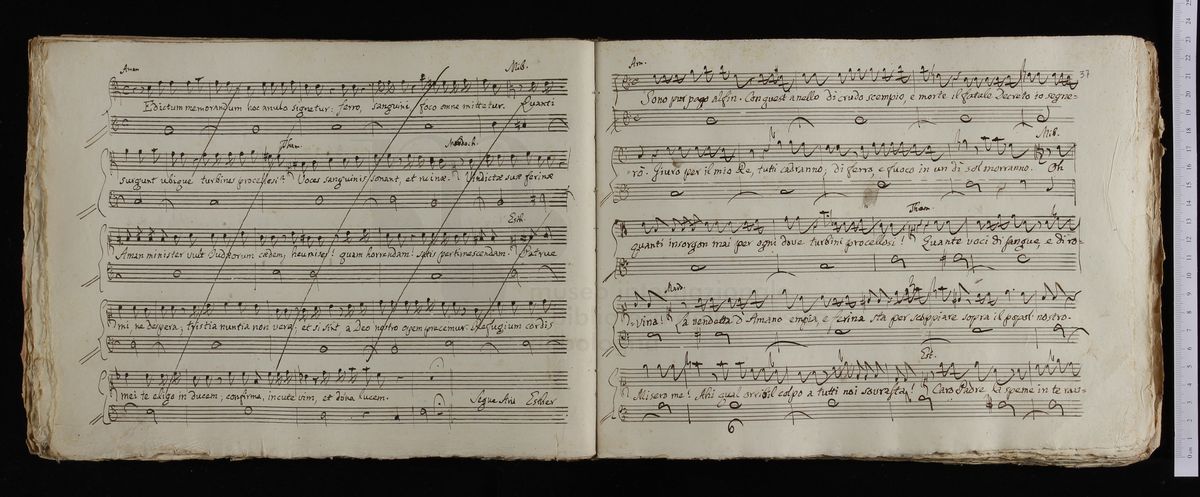 Aman
Mib.
Edictum memorandum hoc anulo signetur: ferro, sanguini foco omne mittetur. Quanti
Tham. Mardoch.
surgunt ubique turbines procellosi? Voces sanguinis sonant, et ruinæ. Vindictæ suæ ferinæ
Esth.
Aman minister vult Judæorum cædem, heu miser! quam horrendam: satis pertinescendam! Patrue
mi, ne despera; tristia nuntia non vera, et si sint a Deo nostro opem precemur. Refugium cordis
mei te eligo in ducem, confirma, incute vim, et dona lucem. Segue Aria Ester
Am. 37
Sono pur pago alfin. Con quest anello di crudo scempio, e morte il fatale Decreto io segne-
Mib.
rò. Giuro per il mio Re, tutti cadranno, di ferro, e fuoco in un dì sol morranno. Oh
Tham.
quanti insorgon mai per ogni dove turbini procellosi! Quante voci di sangue, e di ro-
Mard.
vina! La vendetta d'Amano empia, e ferina sta per scoppiare sopra il popol nostro.
Est.
Misero me! Ahi qual orribil colpo a tutti noi sovrasta! Caro Padre la speme in te rav-
6